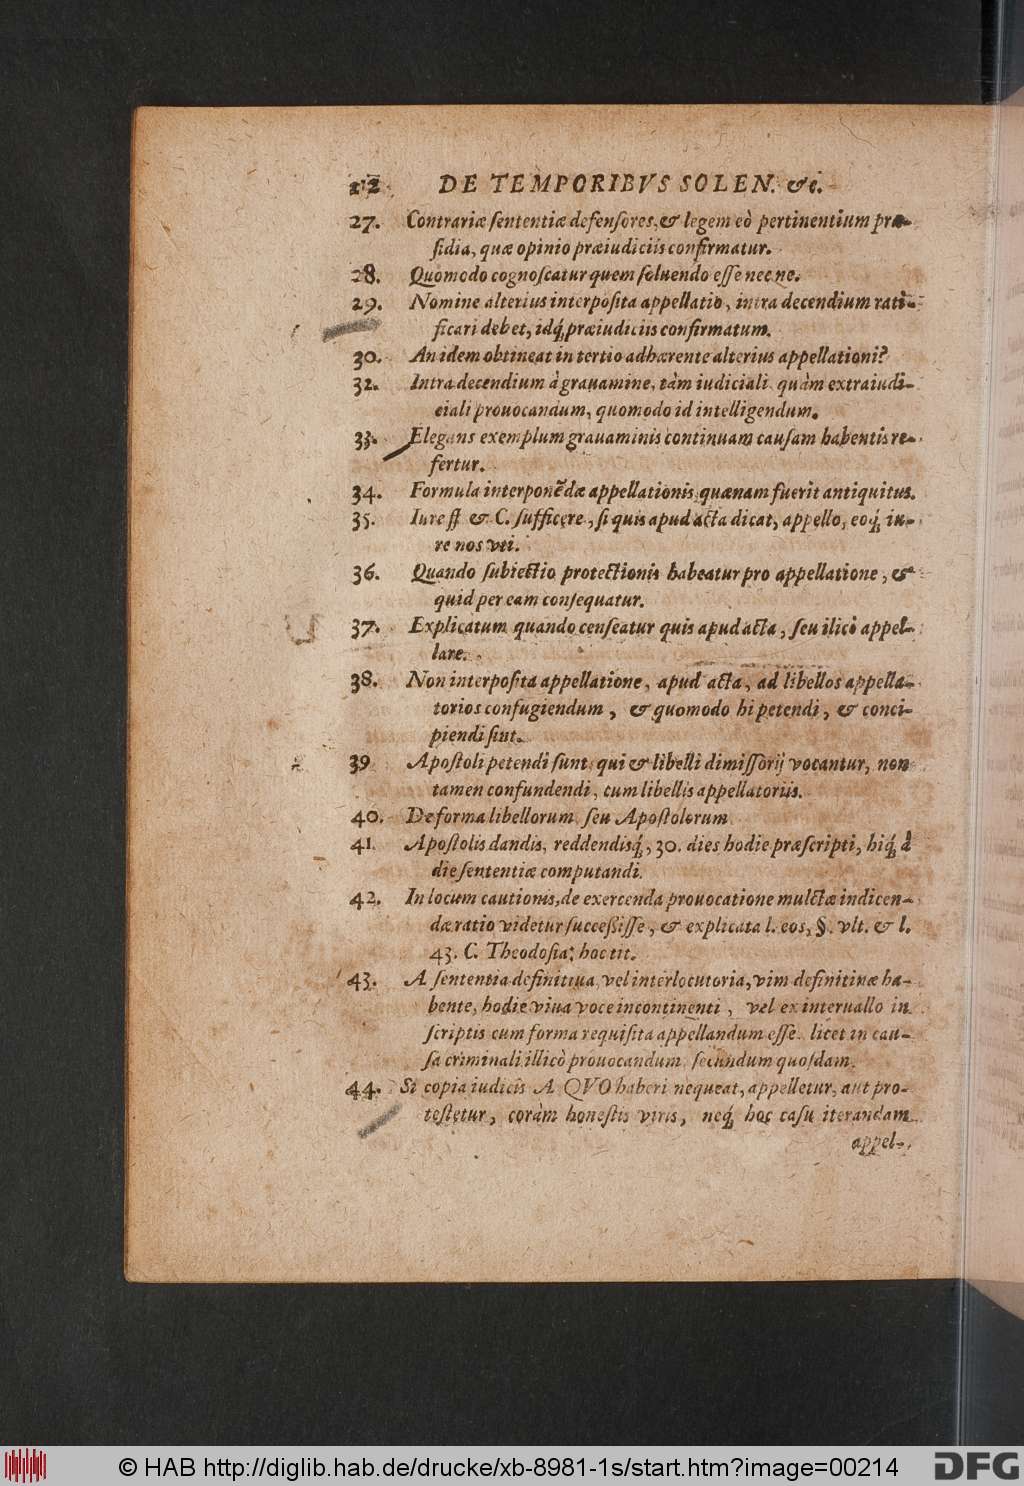 212 DE TEMPORIBVS SOLEN. &c.
27. Contrariæ ſententiæ defenſores, & legem eò pertinentium præ-
ſidia, quæ opinio præiudiciis confirmatur.
28. Quomodo cognoſcatur quem ſoluendo eſſe necne.
29. Nomine alterius interpoſita appellatio, intra decendium rati-
ficari debet, idq́; præiudiciis confirmatum.
30. An idem obtineat in tertio adhærente alterius appellationi?
32. Intra decendium à grauamine, tàm iudiciali quàm extraiudi-
ciali prouocandum, quomodo id intelligendum.
33. Elegans exemplum grauaminis continuam cauſam habentis re-
fertur.
34. Formula interponẽdæ appellationis quænam fuerit antiquitus.
35. Iure ff & C. ſufficere, ſi quis apud acta dicat, appello, eoq́; iu-
re nos vti.
36. Quando ſubiectio protectionis habeatur pro appellatione, &
quid per eam conſequatur.
37. Explicatum quando cenſeatur quis apud acta, ſeu ilicò appel-
lare.
38. Non interpoſita appellatione, apud acta, ad libellos appella-
torios confugiendum, & quomodo hi petendi, & conci-
piendi ſint.
39 Apoſtoli petendi ſunt qui & libelli dimiſſorij vocantur, non
tamen confundendi, cum libellis appellatoriis.
40. De forma libellorum ſeu Apoſtolorum
41. Apoſtolis dandis, reddendisq́;, 30. dies hodie præſcripti, hiq́; à
die ſententiæ computandi.
42. In locum cautionis, de exercenda prouocatione mulctæ indicen-
dæ ratio videtur ſucceßiſſe, & explicata l. eos, §. vlt. & l.
43. C. Theodoſia: hoc tit.
43. A ſententia definitiua, vel interlocutoria, vim definitiuæ ha-
bente, hodie viua voce incontinenti, vel ex interuallo in
ſcriptis cum forma requiſita appellandum eſſe licet in cau-
ſa criminali illicò prouocandum ſecundum quoſdam.
44. Si copia iudicis A QVO haberi nequeat, appelletur, aut pro-
teſtetur, coràm honeſtis viris, neq́; hoc caſu iterandam
appel-
© HAB http://diglib.hab.de/drucke/xb-8981-1s/start.htm?image=00214
DFG